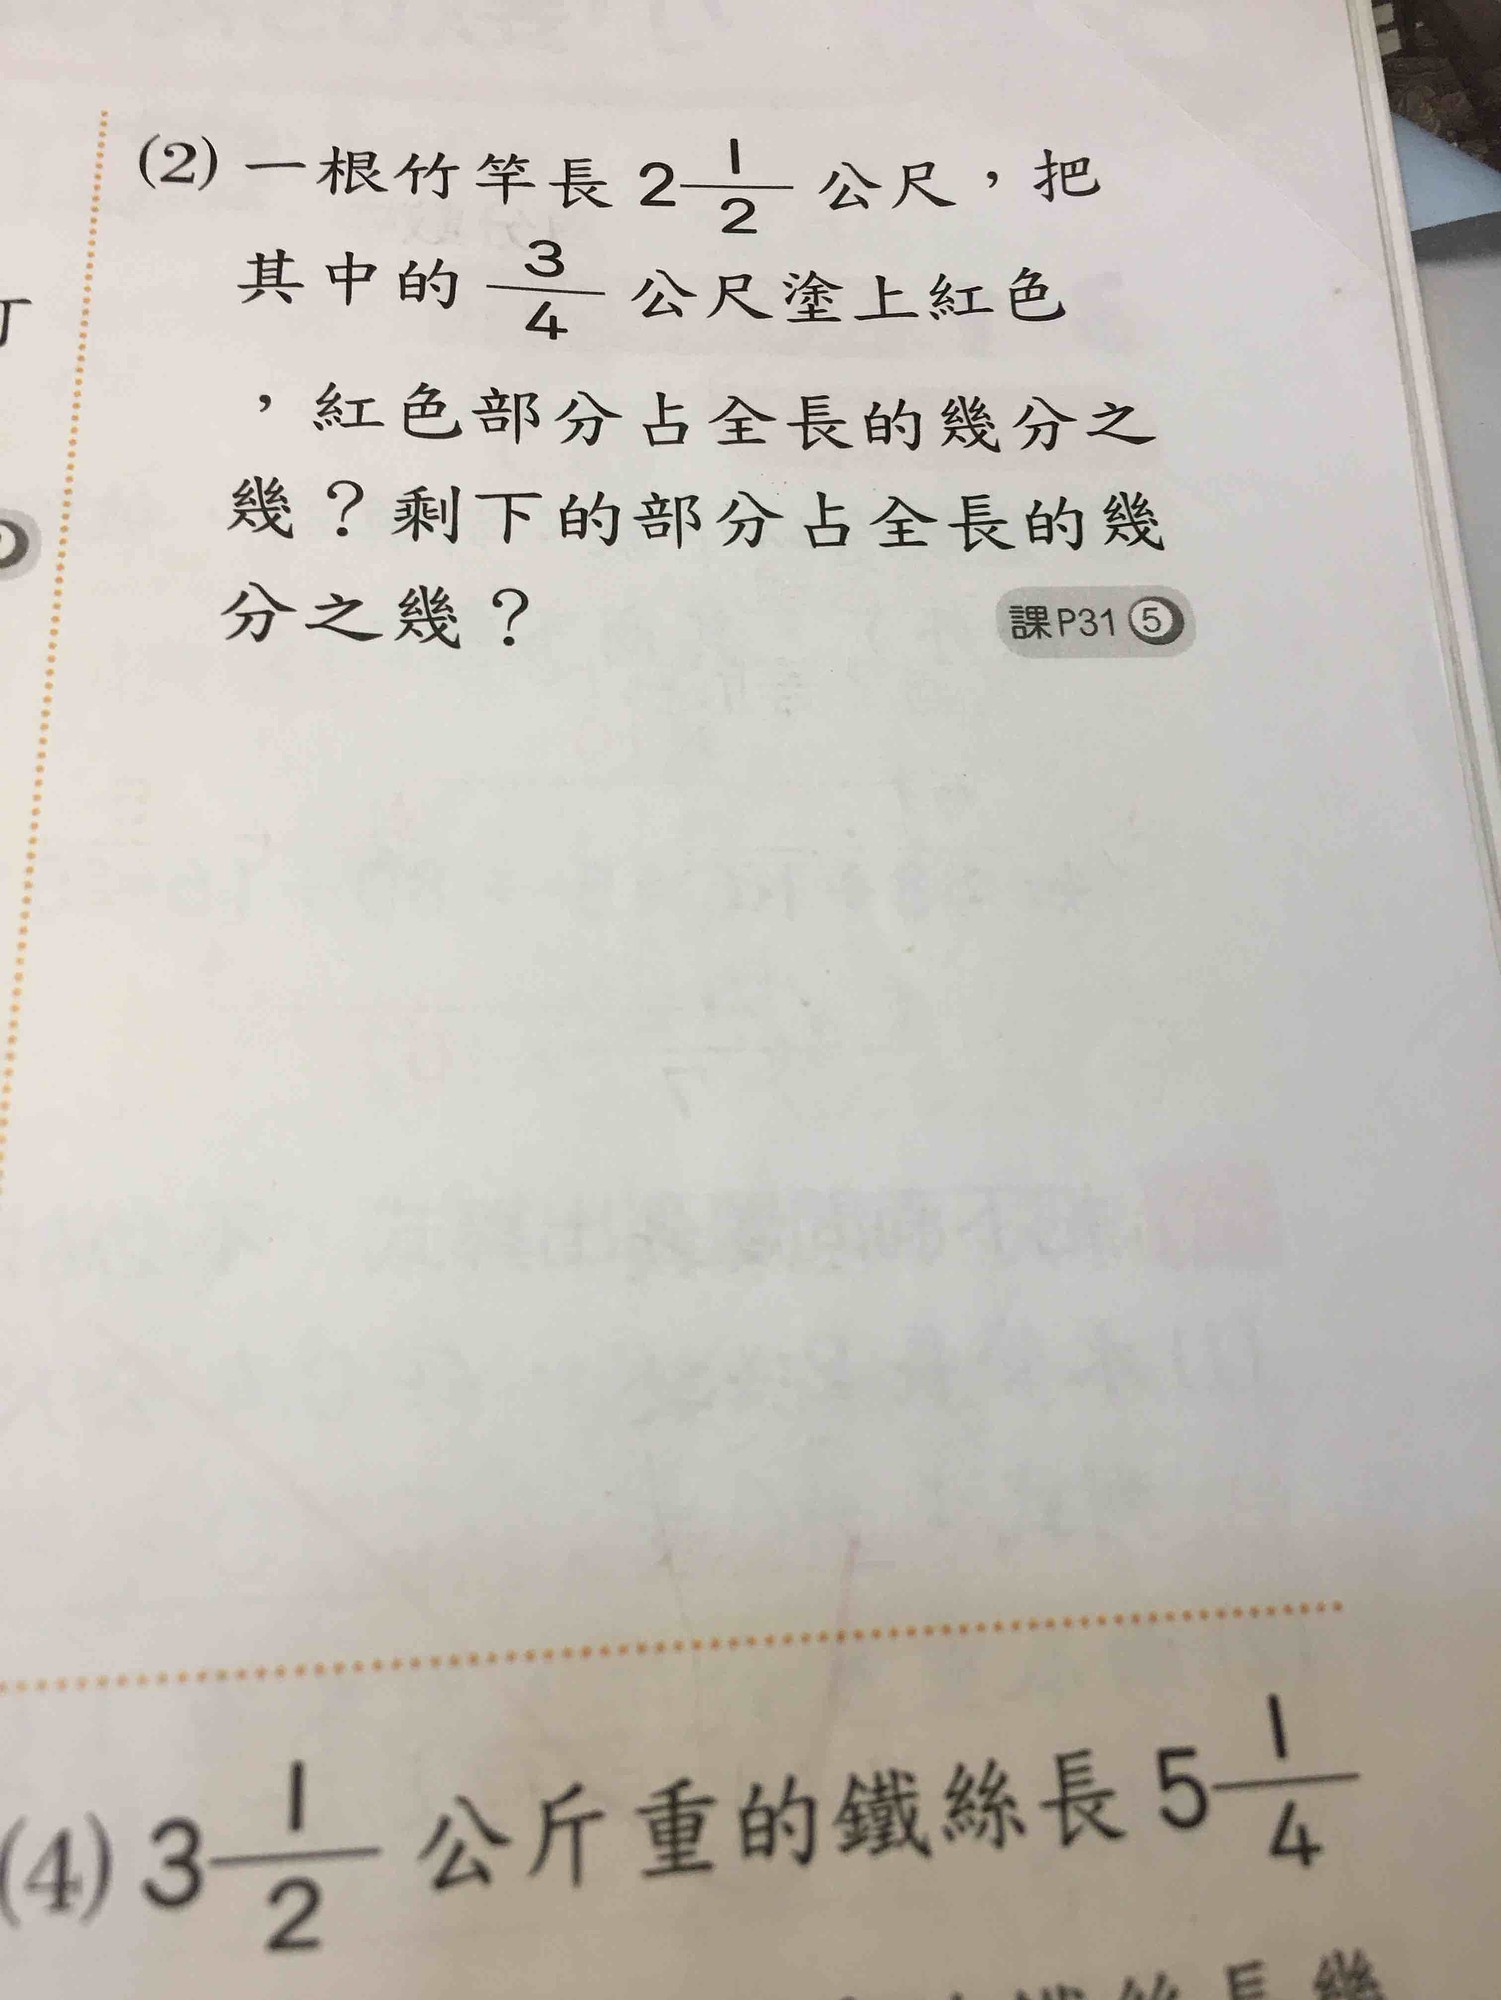 (2) 一根竹竿長 2 1/2 公尺，把
其中的 3/4 公尺塗上紅色
，紅色部分占全長的幾分之
幾？剩下的部分占全長的幾
分之幾？ 課P31 ⑤
(4) 3 1/2 公斤重的鐵絲長 5 1/4